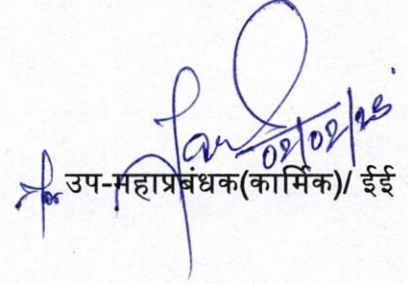 02/02/25
for उप-महाप्रबंधक(कार्मिक)/ ईई